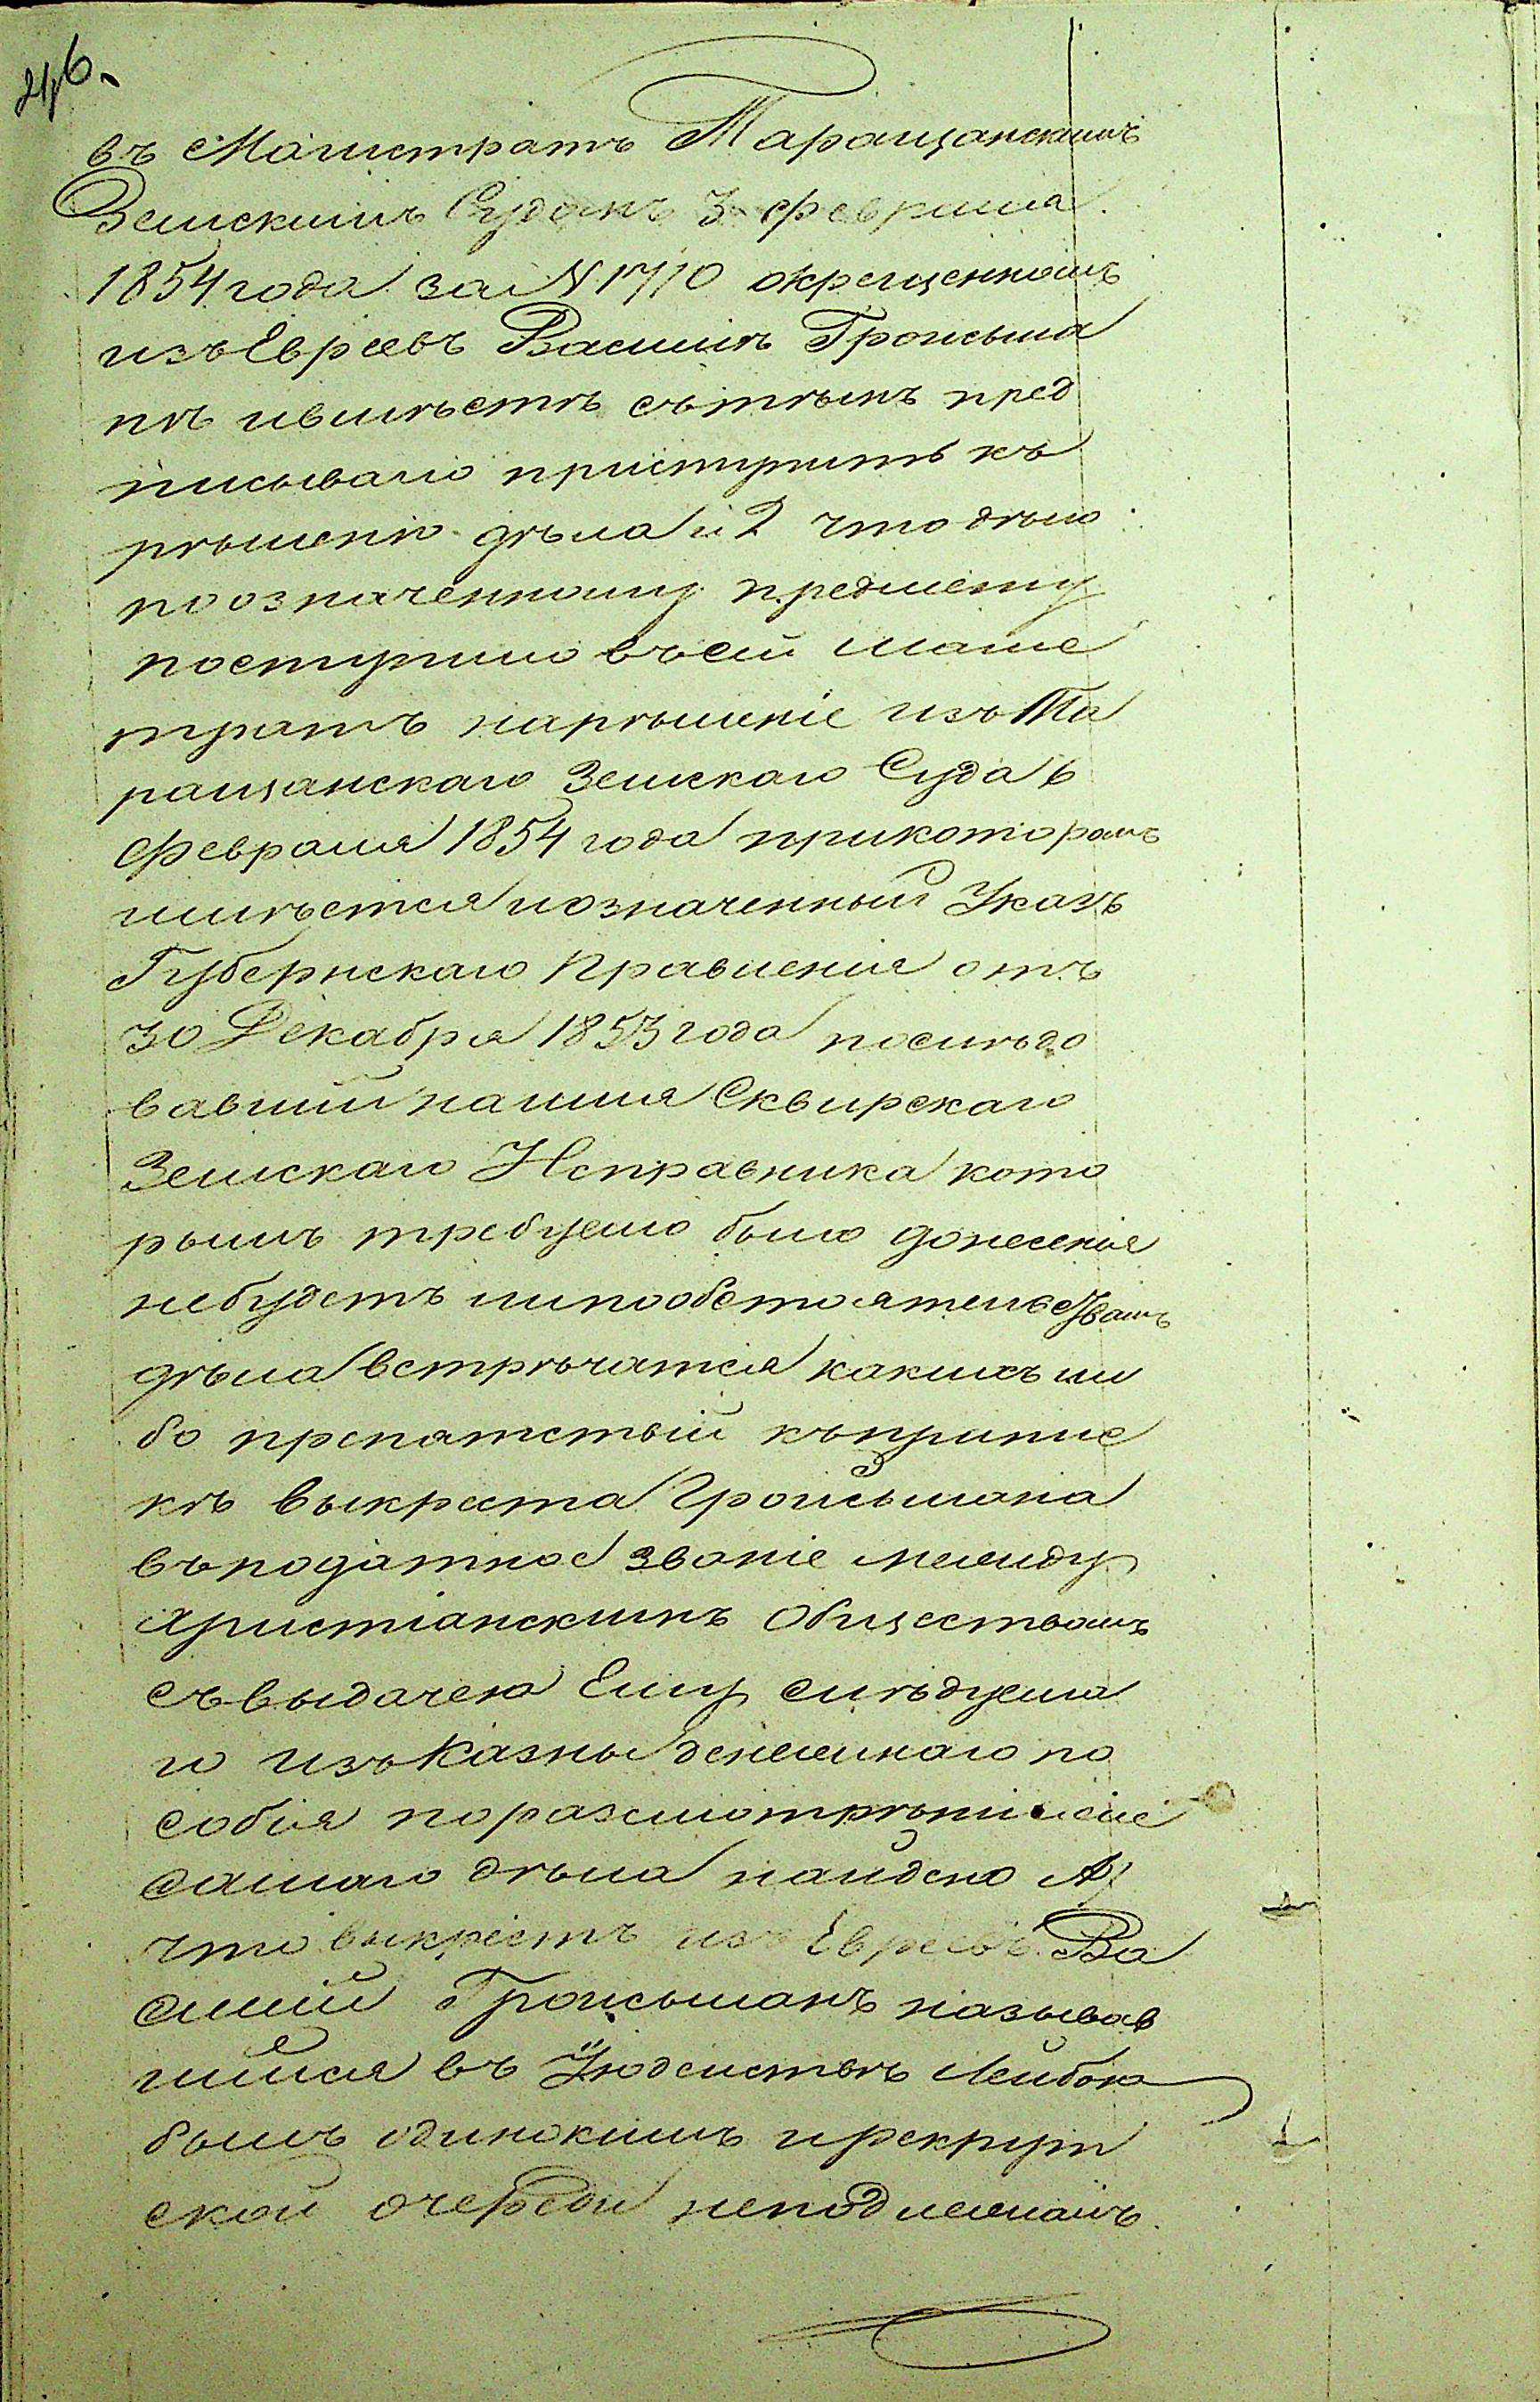 246.
въ Магистратъ Таращанскимъ
Земскимъ Судомъ 3 февраля
1854 года за N 1710 окрещенномъ
изъ Евреевъ Василіѣ Гройсма
нѣ и вмѣстѣ съ тѣмъ пред
писывало приступить къ
рѣшенію дѣла и 2 что дѣло
по означенному предмету
поступило въ сей Магис
тратъ на рѣшеніе изъ Та
ращанскаго Земскаго Суда 6
февраля 1854 года при которомъ
имѣется и означенный Указъ
Губернскаго Правленія отъ
30 Декабря 1853 года послѣдо
вавший на имя Сквирскаго
Земскаго Исправника кото
рымъ требуемо было донесенія
небудетъ ли по обстоятельствамъ
дѣла встрѣчатся какихъ ли
бо препятствій къ припис
кѣ выкреста Гройсьмана
въ податное званіе между
христіанскимъ обществомъ
съ выдачею Ему слѣдуема
го изъ Казны денежнаго по
собія по разсмотрѣніи
самаго дѣла найдено А)
что выкрестъ изъ Евреевъ Ва
силій Гройсьманъ называв
шийся въ Іюдействѣ Лейбою
былъ одинокимъ и рекрут
ской очереди неподлежалъ.